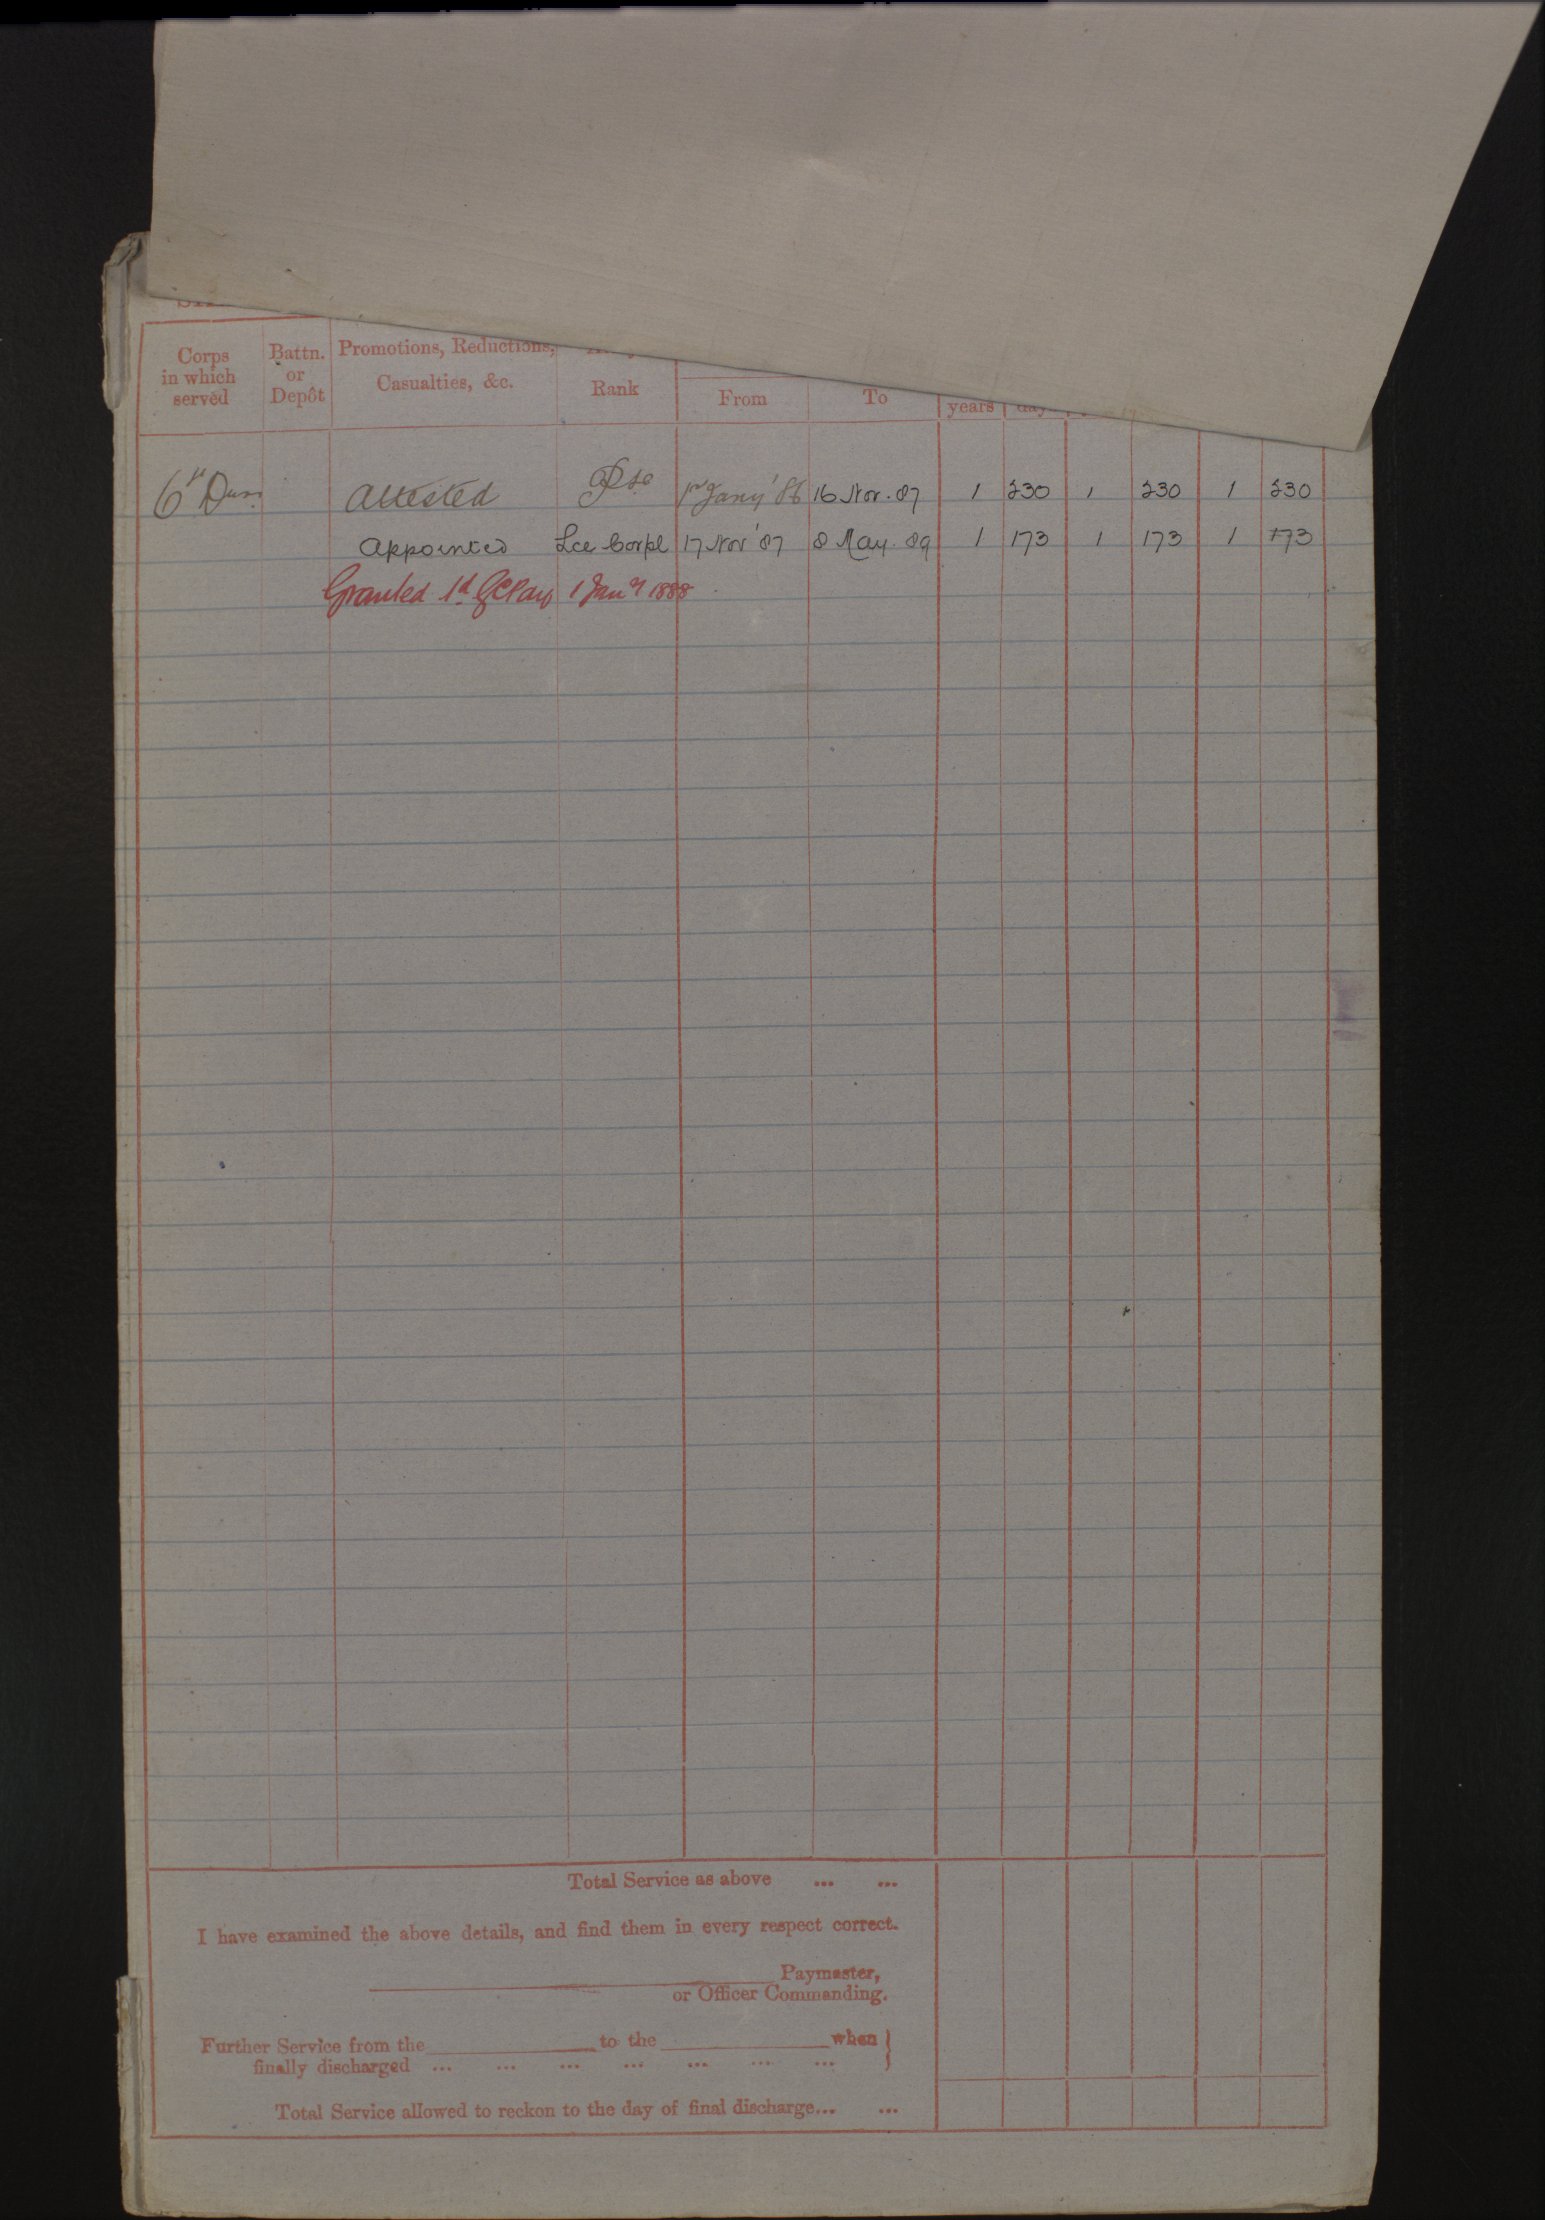 Corps in which served
Battn. or Depôt
Promotions, Reductions, Casualties, &c.
Rank
From
To
years
6th Attested Pte 1st Jany '86 16 Nov. 87 1 230 1 230 1 230
Appointed Lce Corpl 17 Nov '87 8 May. 89 1 173 1 173 1 173
Granted 1d GCPay 1 Jany 1888
Total Service as above ... ...
I have examined the above details, and find them in every respect correct.
Paymaster,
or Officer Commanding.
Further Service from the to the when }
finally discharged ... ... ... ... ... ... ...
Total Service allowed to reckon to the day of final discharge... ...